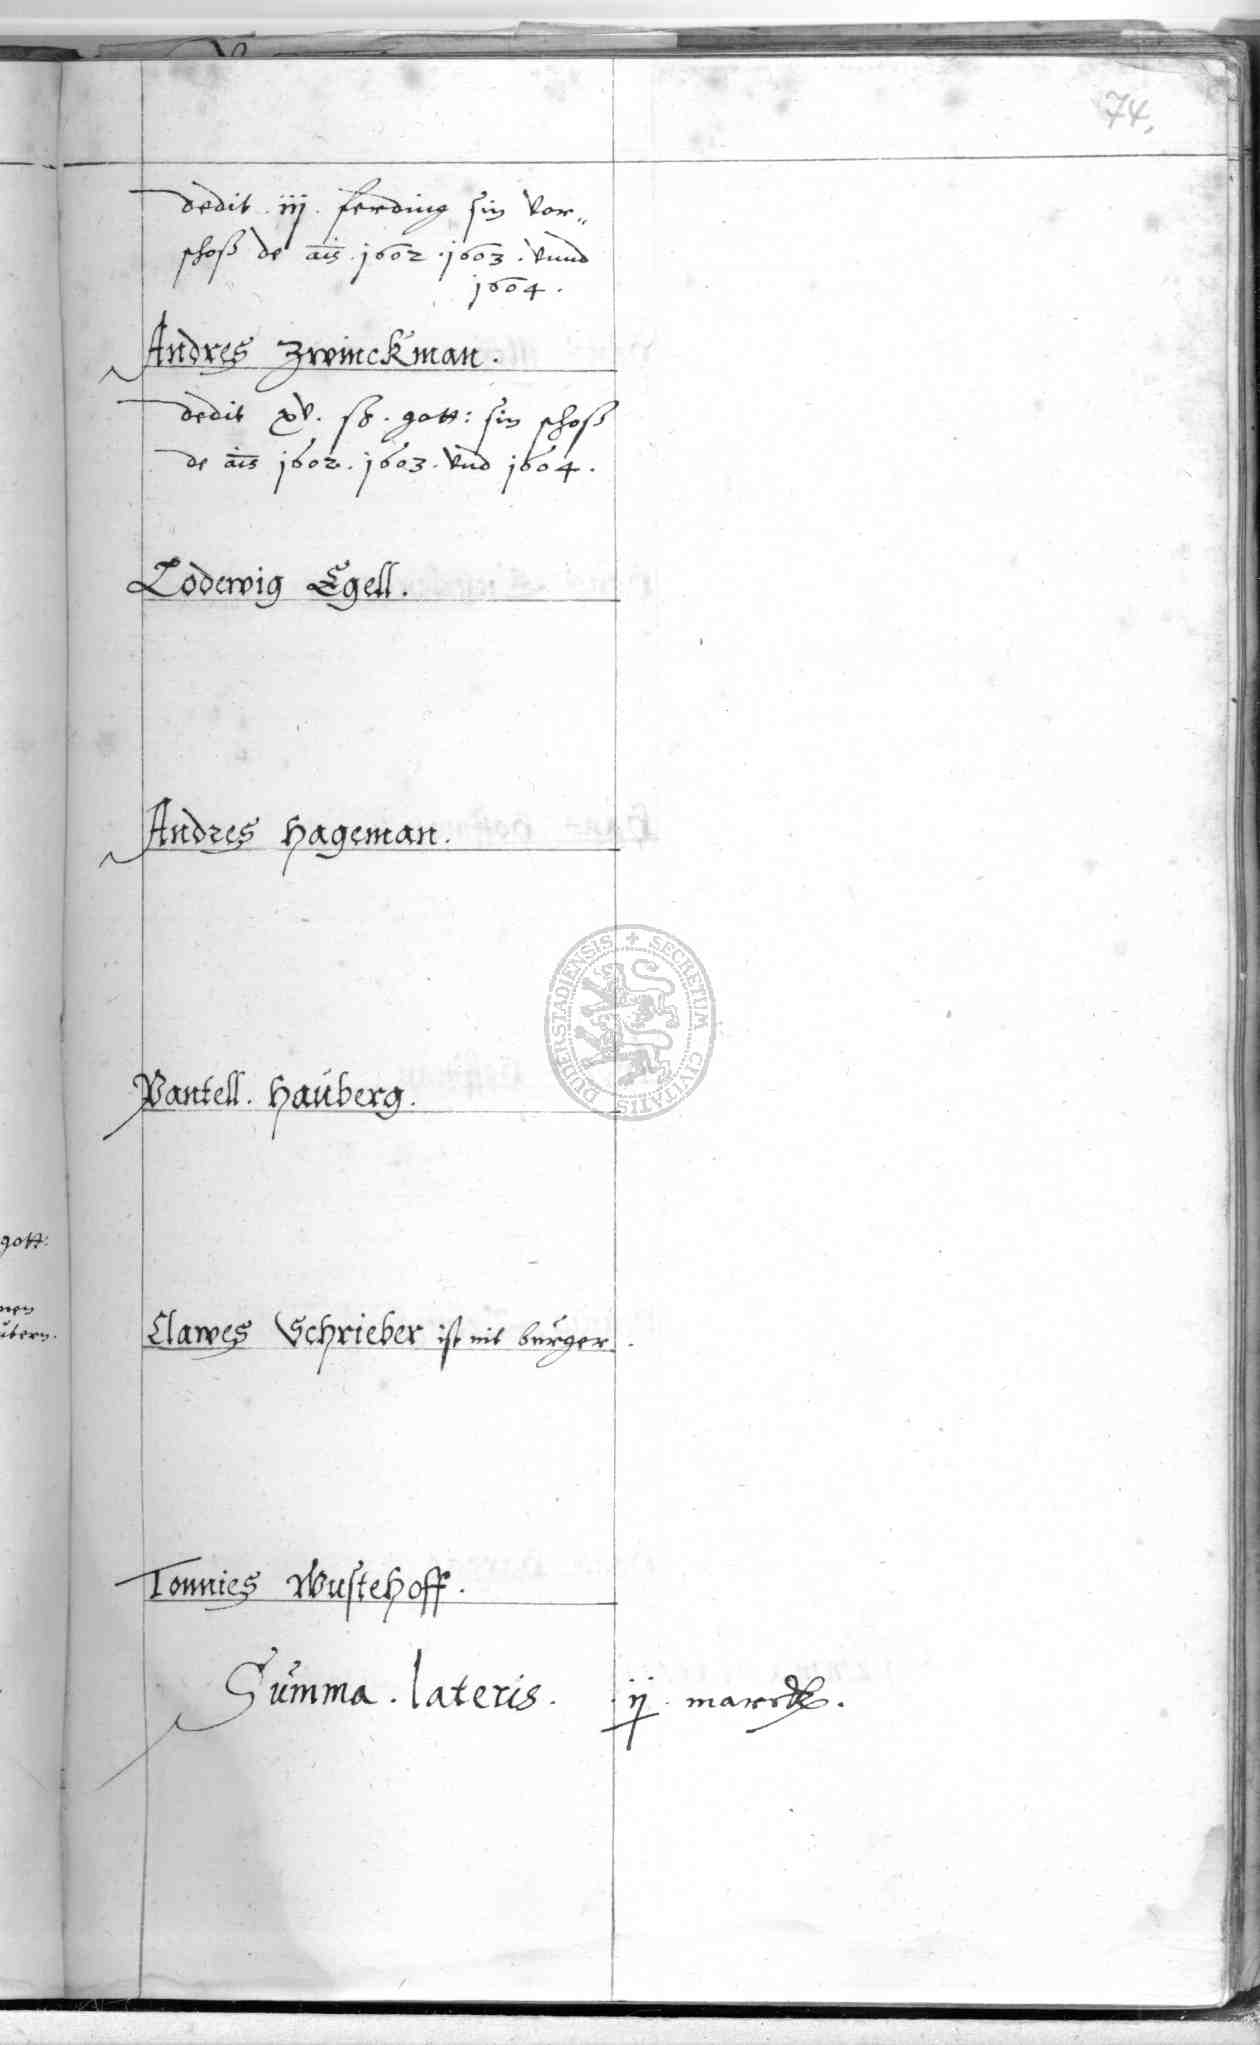 74.
dedit . iij . ferding sin vor„
schoß de ais . 1602 . 1603 . vnnd
1604 .
Andres Zwinckman .
dedit xv . ß . gott : sin schoß
de ais 1602 . 1603 . vnd 1604 .
Lodewig Egell .
Andres Hageman .
Pantell . Hauberg .
SECRETUM CIVITATIS DUDERSTADIENSIS
gott :
Clawes Schrieber ist nit burger .
Tonnies Wustehoff .
Summa . lateris . ij . marck .